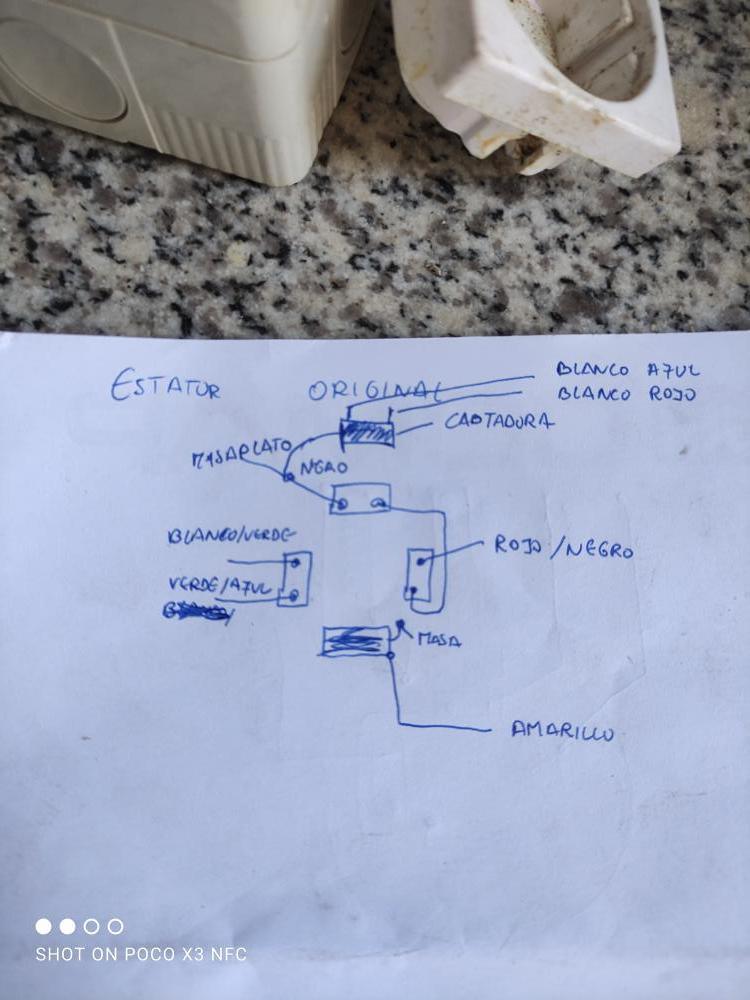 ESTATOR
ORIGINAL
BLANCO AZUL
BLANCO ROJO
CABTADORA
MASAPLATO
NEGRO
BLANCO/VERDE
ROJO/NEGRO
VERDE/AZUL
MASA
AMARILLO
SHOT ON POCO X3 NFC